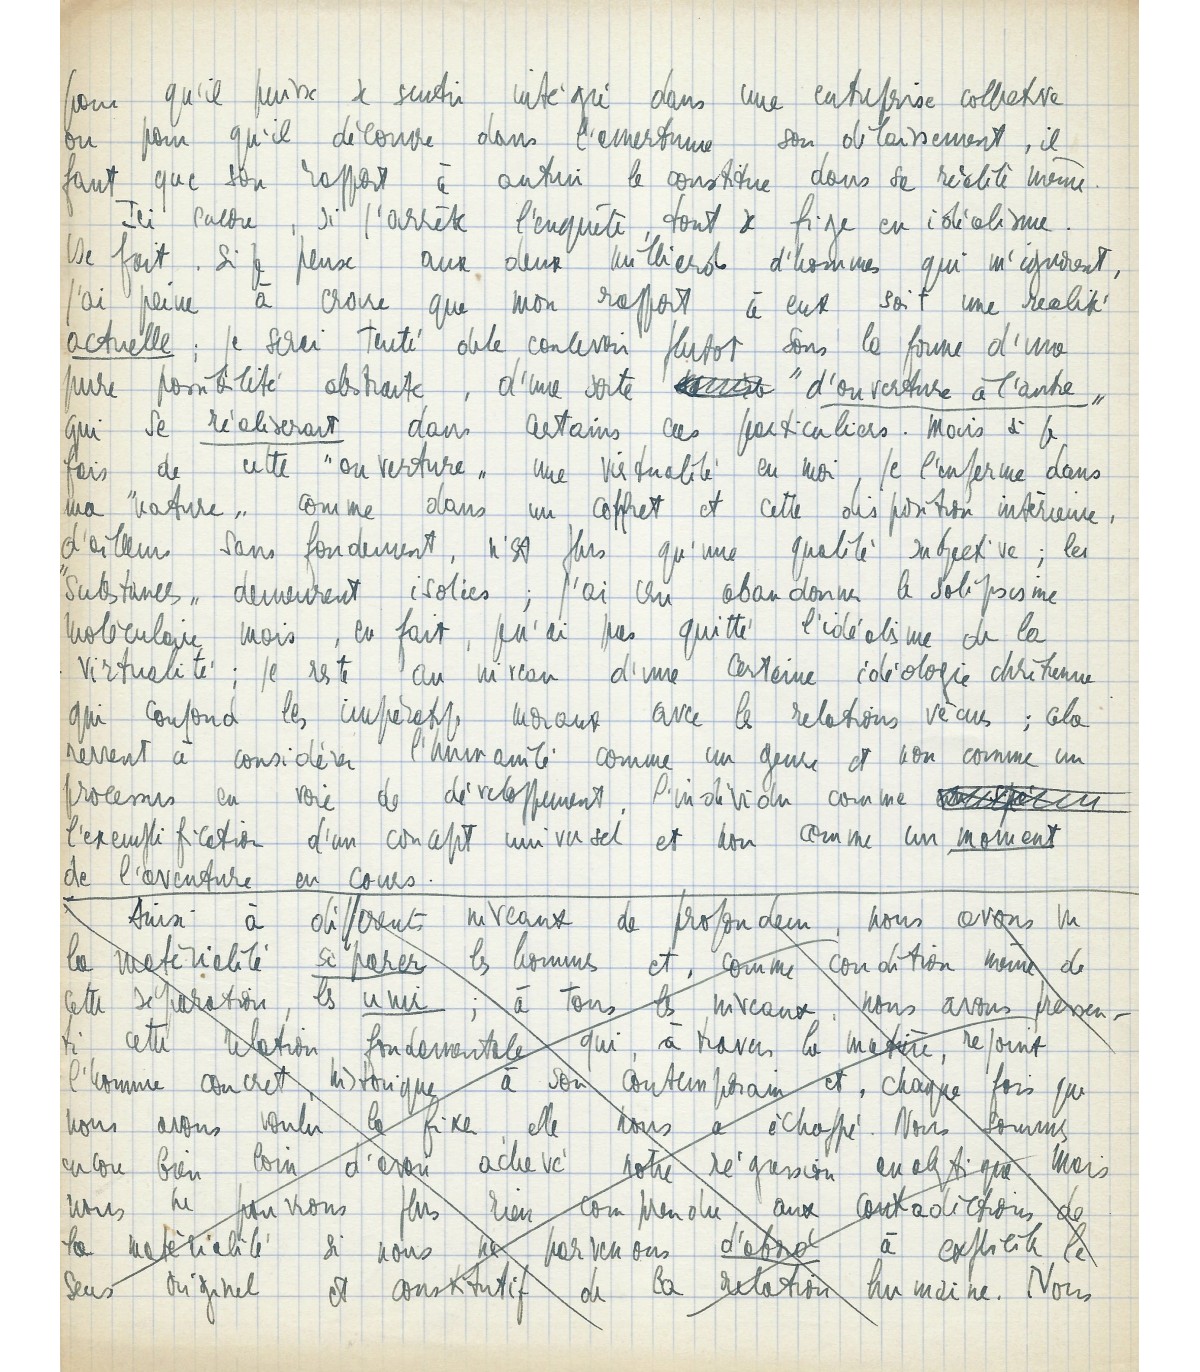 pour qu'il puisse se sentir intégré dans une entreprise collective
ou pour qu'il découvre dans l'amertume son délaissement, il
faut que son rapport à autrui le constitue dans sa réalité même.
Ici encore, si j'arrête l'enquête, tout se fige en idéalisme.
De fait, si je pense aux deux milliards d'hommes qui m'ignorent,
j'ai peine à croire que mon rapport à eux soit une réalité
actuelle ; je serai tenté de le concevoir plutôt sous la forme d'une
pure possibilité abstraite, d'une sorte "d'ouverture à l'autre"
qui se réaliserait dans certains cas particuliers. Mais si je
fais de cette "ouverture" une virtualité en moi, je l'enferme dans
ma "nature" comme dans un coffret et cette disposition intérieure,
d'ailleurs sans fondement, n'est plus qu'une qualité subjective ; les
"substances" demeurent isolées ; j'ai cru abandonner le solipsisme
moléculaire mais, en fait, je n'ai pas quitté l'idéalisme de la
virtualité ; je reste au niveau d'une certaine idéologie chrétienne
qui confond les impératifs moraux avec les relations vécues ; cela
revient à considérer l'humanité comme un genre et non comme un
processus en voie de développement, l'individu comme
l'exemplification d'un concept universel et non comme un moment
de l'aventure en cours.
Ainsi à différents niveaux de profondeur, nous avons vu
la matérialité séparer les hommes et, comme condition même de
cette séparation, les unir ; à tous les niveaux, nous avons pressen-
ti cette relation fondamentale qui, à travers la matière, rejoint
l'homme concret, historique à son contemporain et, chaque fois que
nous avons voulu la fixer, elle nous a échappé. Nous sommes
encore bien loin d'avoir achevé notre régression analytique mais
nous ne pourrons plus rien comprendre aux contradictions de
la matérialité si nous ne parvenons d'abord à expliciter le
sens originel et constitutif de la relation humaine. Nous